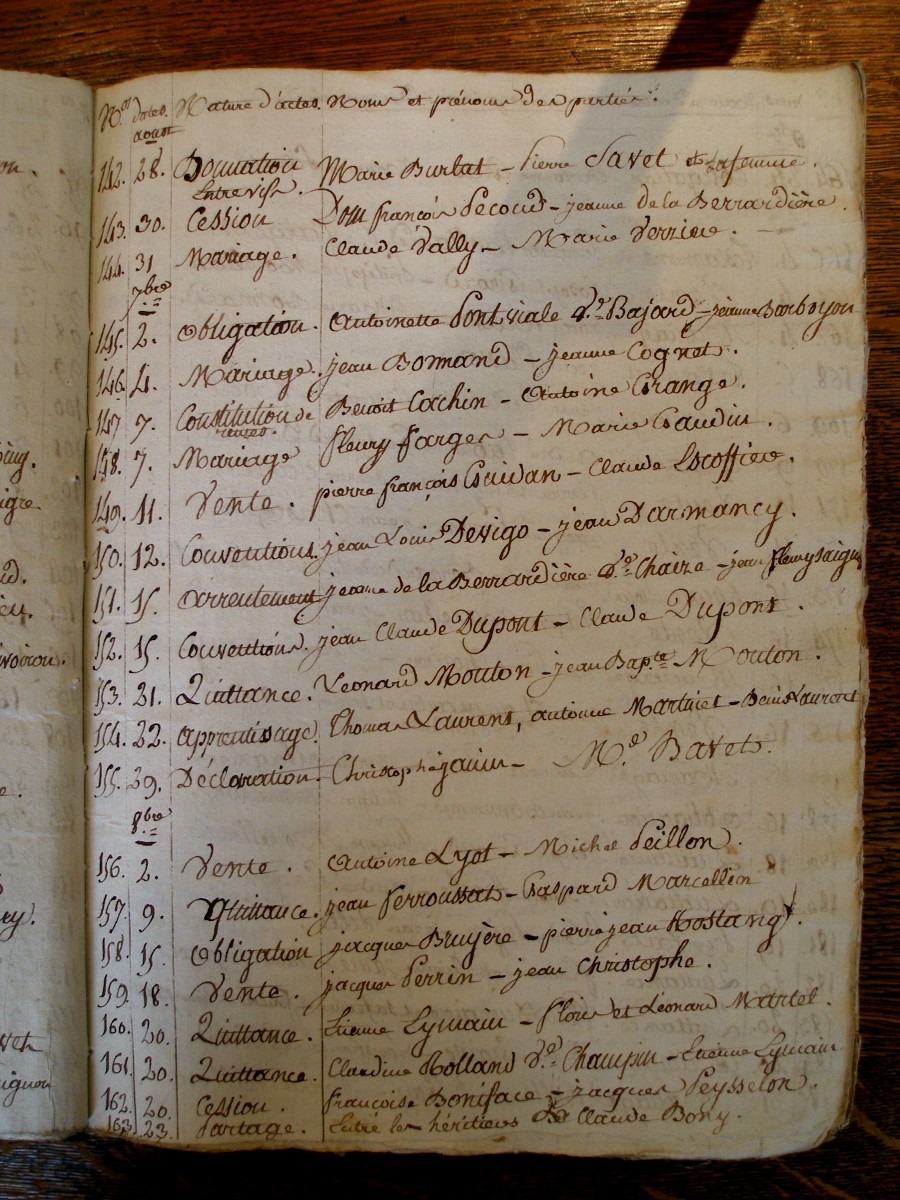 N.os dates Nature d'actes. Noms et prénoms des parties.
aoust
142. 28. Donnation Marie Burlat - Pierre Savet et sa femme.
Entre vifs.
143. 30. Cession Dom françois Pecoud - jeanne de la Berrardière.
144. 31 Mariage. Claude Vally - Marie Verrieu.
7bre
145. 2. Obligation. Antoinette Pontviale Ve. Bajard - jeanne Barboyon
146. 4. Mariage. jean Bonnand - jeanne Cognet.
147 7. Constitution de Benoit Cochin - Antoine Grange.
rentes.
148. 7. Mariage fleury farges - Marie Gaudin.
149. 11. Vente. pierre françois Guidan - Claude Escoffier.
150. 12. Conventions. jean Louis Devigo - jean Darmancy.
151. 15. arrentement jeanne de la Berrardière Ve. Chaize - jean fleury
152. 15. Conventions. jean Claude Dupont - Claude Dupont.
153. 21. Quittance. Léonard Mouton - jean Bapte. Mouton.
154. 22. apprentissage. Thomas Laurent, antoine Martinet - Denis Laurent
155. 29. Déclaration. Christophe janin - Me. Bavet.
8bre
156. 2. Vente. Antoine Lyot - Michel Peillon.
157. 9. Quittance. jean Ferroussat - Gaspard Marcellin
158. 15. Obligation jacques Bruyère - pierre jean Hostang.
159. 18. Vente. jacques Perrin - jean Christophe.
160. 20. Quittance. Etienne Lymain - floris et Léonard Martel.
161. 20. Quittance. Claudine Rolland Ve. Champin - Etienne Lymain
162. 20. Cession. françoise Boniface - jacques Peysselon.
163. 23. Partage. Entre les héritiers de Claude Bony.